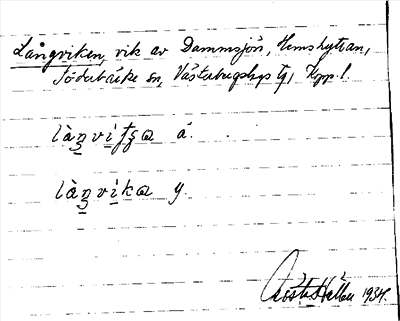 Långviken, vik av Dammsjön, Hemshyttan,
Söderbärke sn, Västerbergslags tg, Kpp.l.
làŋvìtʃa ä.
làŋvìka y.
Gösta Hallén 1934.